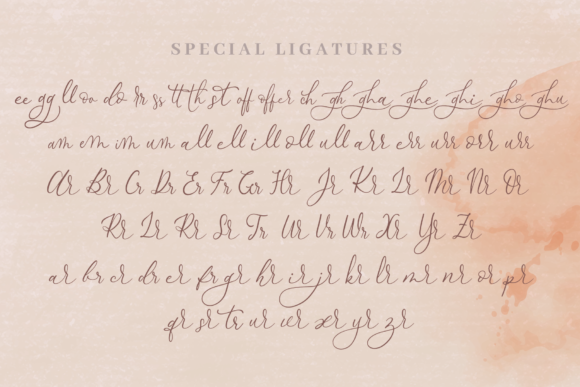 SPECIAL LIGATURES
ee gg ll oo do rr ss tt th st off offer ch gh gha ghe ghi gho ghu
am em im um all ell ill oll ull arr err urr orr urr
Ar Br Cr Dr Er Fr Gr Hr Jr Kr Lr Mr Nr Or
Rr Lr Rr Sr Tr Ur Vr Wr Xr Yr Zr
ar br cr dr er fr gr hr ir jr kr lr mr nr or pr
qr sr tr ur vr xr yr zr